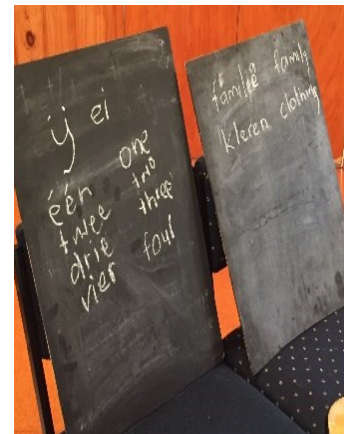 ij ei
één one
twee two
drie three
vier four
familie family
kleren clothing